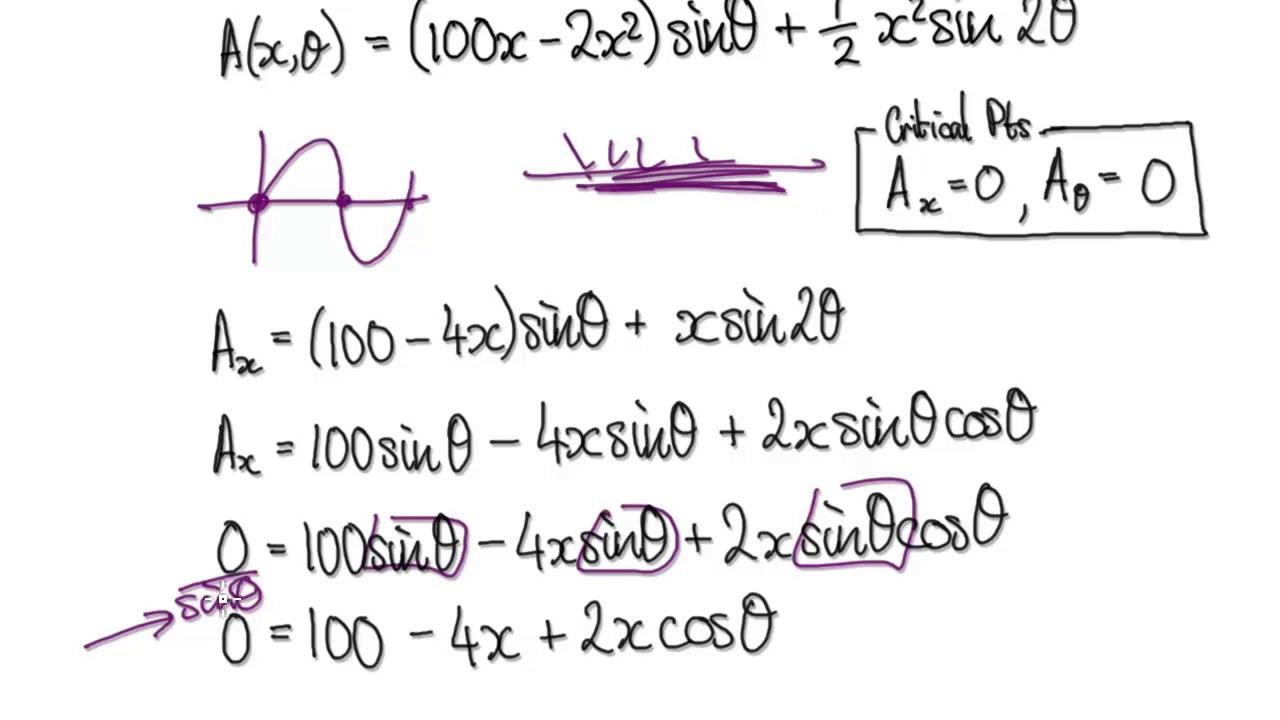 A(x,θ) = (100x − 2x²) sinθ + 1/2 x² sin 2θ
Critical Pts
Aₓ = 0 , A_θ = 0
Aₓ = (100 − 4x) sinθ + x sin2θ
Aₓ = 100 sinθ − 4x sinθ + 2x sinθ cosθ
0 = 100 sinθ − 4x sinθ + 2x sinθ cosθ
sinθ
0 = 100 − 4x + 2x cosθ